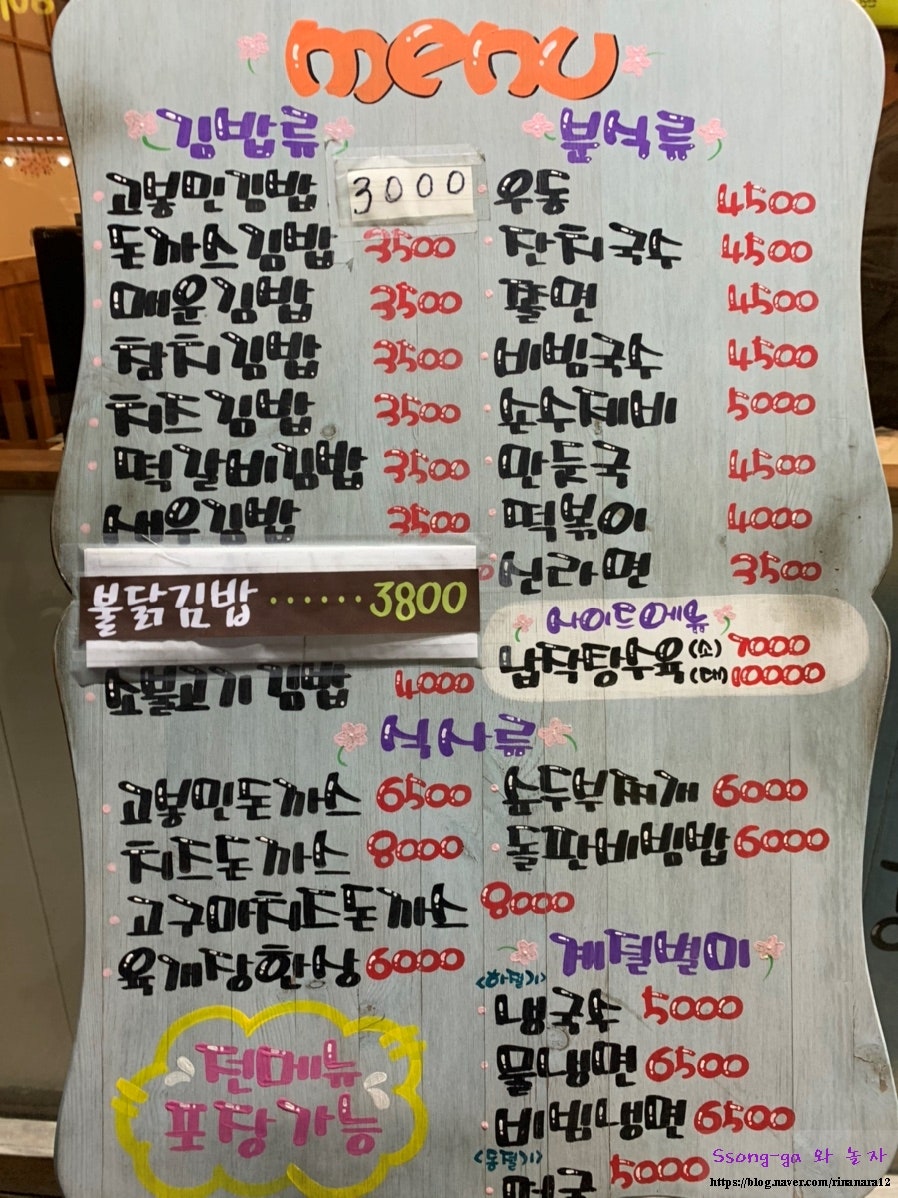 menu
김밥류
고봉민김밥 3000
돈까스김밥 3500
매운김밥 3500
참치김밥 3500
치즈김밥 3500
떡갈비김밥 3500
새우김밥 3500
불닭김밥 ······ 3800
소불고기김밥 4000
분식류
우동 4500
잔치국수 4500
쫄면 4500
비빔국수 4500
손수제비 5000
만둣국 4500
떡볶이 4000
신라면 3500
사이드메뉴
납작탕수육 (소) 7000
(대) 10000
식사류
고봉민돈까스 6500
치즈돈까스 8000
고구마치즈돈까스 8000
육개장한상 6000
순두부찌개 6000
돌판비빔밥 6000
계절별미
<하절기>
냉국수 5000
물냉면 6500
비빔냉면 6500
<동절기>
떡국 5000
전메뉴
포장가능
Ssong-ga 와 놀자
https://blog.naver.com/rinanara12